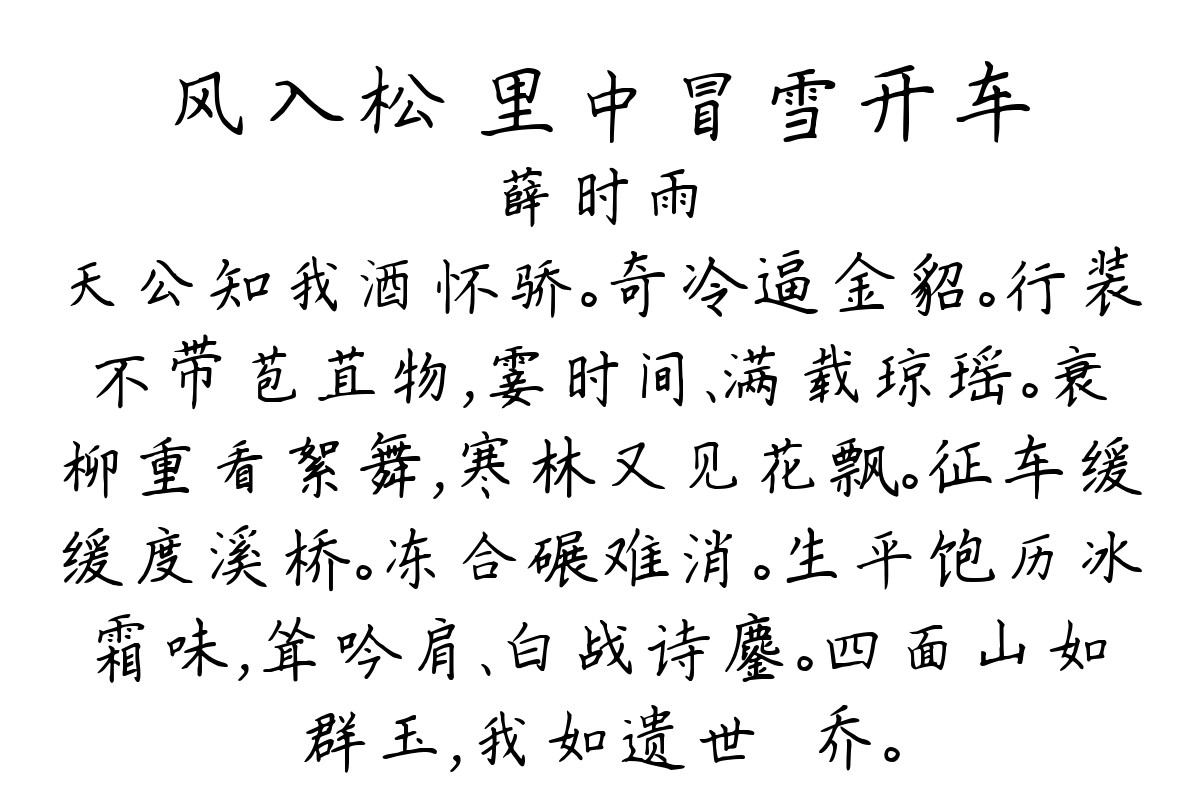 风入松 里中冒雪开车
薛时雨
天公知我酒怀骄。奇冷逼金貂。行装
不带苞苴物,霎时间、满载琼瑶。衰
柳重看絮舞,寒林又见花飘。征车缓
缓度溪桥。冻合碾难消。生平饱历冰
霜味,耸吟肩、白战诗鏖。四面山如
群玉,我如遗世 乔。